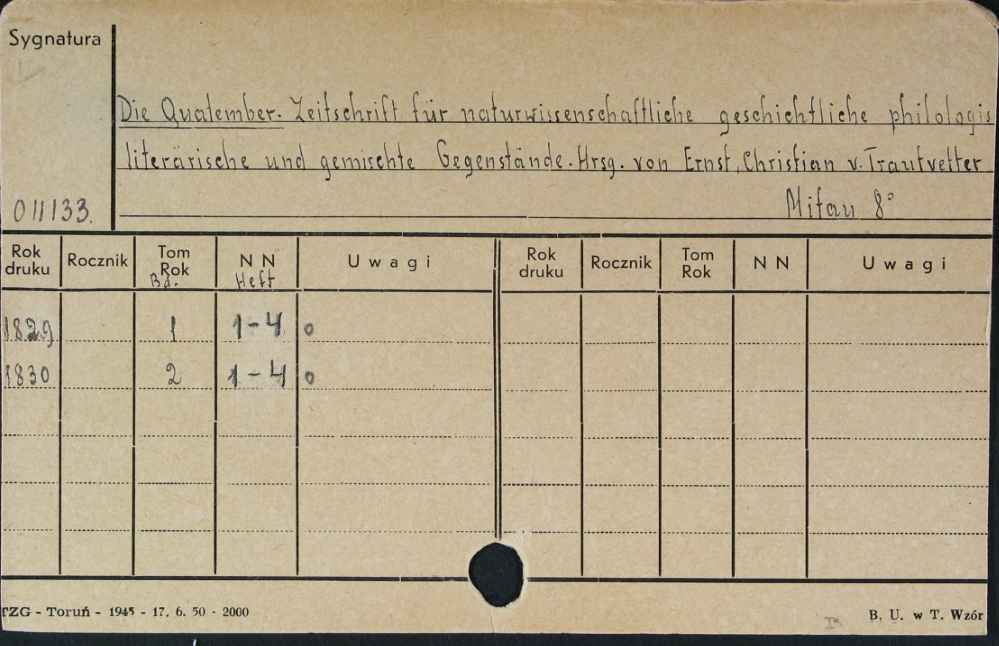 Sygnatura
Die Quatember. Zeitschrift für naturwissenschaftliche geschichtliche philologis
literärische und gemischte Gegenstände. Hrsg. von Ernst, Christian v. Trautvetter
011133. Mitau 8°
Rok druku Rocznik Tom Rok Bd. N N Heft Uwagi Rok druku Rocznik Tom Rok N N Uwagi
1829 1 1-4 o
1830 2 1-4 o
TZG - Toruń - 1945 - 17. 6. 50 - 2000 B. U. w T. Wzór